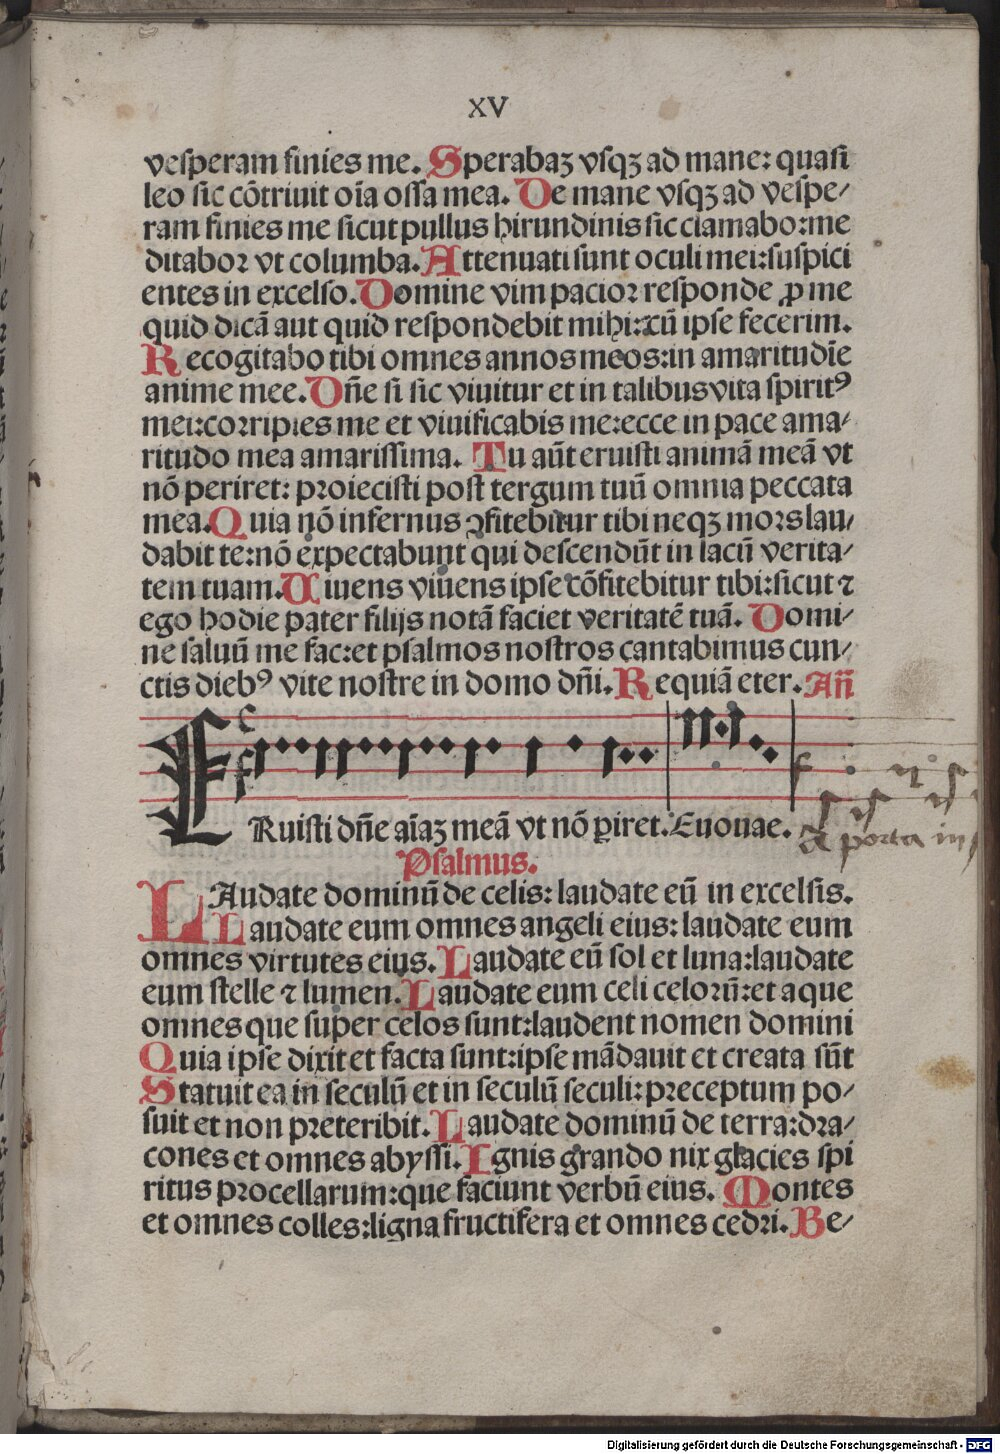 XV
vesperam finies me. Sperabaꝫ vsqꝫ ad mane: quasi
leo sic cōtriuit oīa ossa mea. De mane vsqꝫ ad vespe/
ram finies me sicut pullus hirundinis sic clamabo:me
ditabor vt columba. Attenuati sunt oculi mei:suspici
entes in excelso. Domine vim pacior responde ꝓ me
quid dicā aut quid respondebit mihi:cū ipse fecerim.
Recogitabo tibi omnes annos meos:in amaritudīe
anime mee. Dn̄e si sic viuitur et in talibus vita spiritꝰ
mei:corripies me et viuificabis me:ecce in pace ama/
ritudo mea amarissima. Tu aūt eruisti animā meā vt
nō periret: proiecisti post tergum tuū omnia peccata
mea. Quia nō infernus ꝯfitebitur tibi neqꝫ mors lau/
dabit te:nō expectabunt qui descendūt in lacū verita/
tem tuam. Uiuens viuens ipse cōfitebitur tibi:sicut ⁊
ego hodie pater filijs notā faciet veritatē tuā. Domi/
ne saluū me fac:et psalmos nostros cantabimus cun/
ctis diebꝰ vite nostre in domo dn̄i. Requiā eter. Añ
ERuisti dn̄e aīaꝫ meā vt nō ꝑiret. Euouae.
a porta in
Psalmus.
LAudate dominū de celis: laudate eū in excelsis.
Laudate eum omnes angeli eius: laudate eum
omnes virtutes eius. Laudate eū sol et luna:laudate
eum stelle ⁊ lumen. Laudate eum celi celorū:et aque
omnes que super celos sunt:laudent nomen domini
Quia ipse dixit et facta sunt:ipse mādauit et creata sūt
Statuit ea in seculū et in seculū seculi:preceptum po/
suit et non preteribit. Laudate dominū de terra:dra/
cones et omnes abyssi. Ignis grando nix glacies spi
ritus procellarum:que faciunt verbū eius. Montes
et omnes colles:ligna fructifera et omnes cedri. Be/
Digitalisierung gefördert durch die Deutsche Forschungsgemeinschaft - DFG